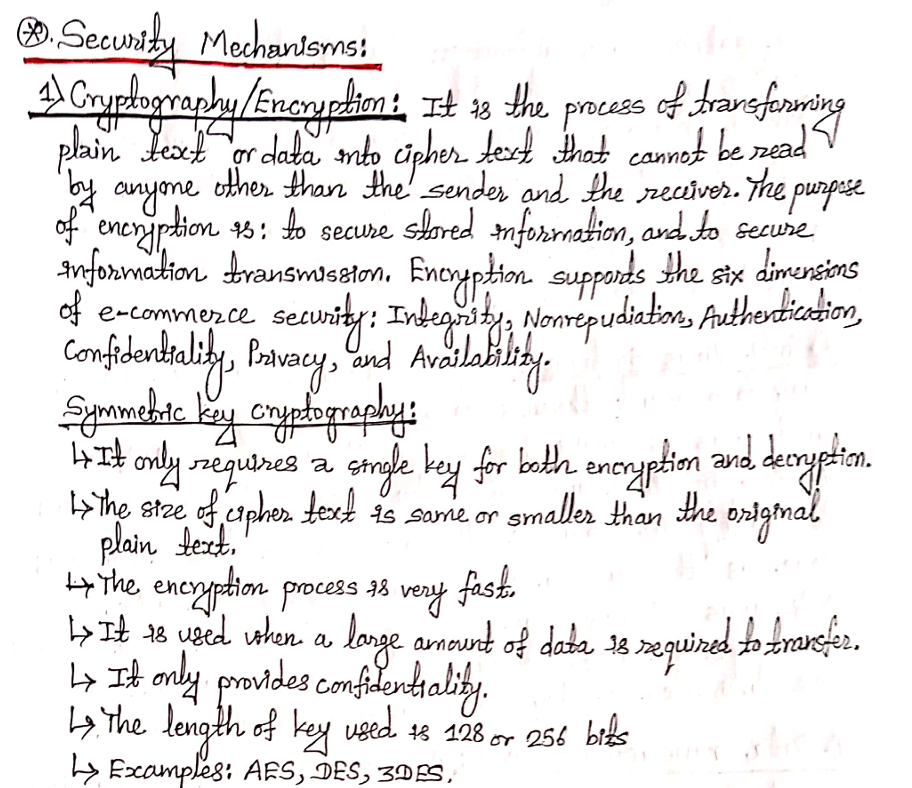 (*). Security Mechanisms:
1) Cryptography/Encryption: It is the process of transforming
plain text or data into cipher text that cannot be read
by anyone other than the sender and the receiver. The purpose
of encryption is: to secure stored information, and to secure
information transmission. Encryption supports the six dimensions
of e-commerce security: Integrity, Nonrepudiation, Authentication,
Confidentiality, Privacy, and Availability.
Symmetric key cryptography:
↳ It only requires a single key for both encryption and decryption.
↳ The size of cipher text is same or smaller than the original
plain text.
↳ The encryption process is very fast.
↳ It is used when a large amount of data is required to transfer.
↳ It only provides confidentiality.
↳ The length of key used is 128 or 256 bits
↳ Examples: AES, DES, 3DES.